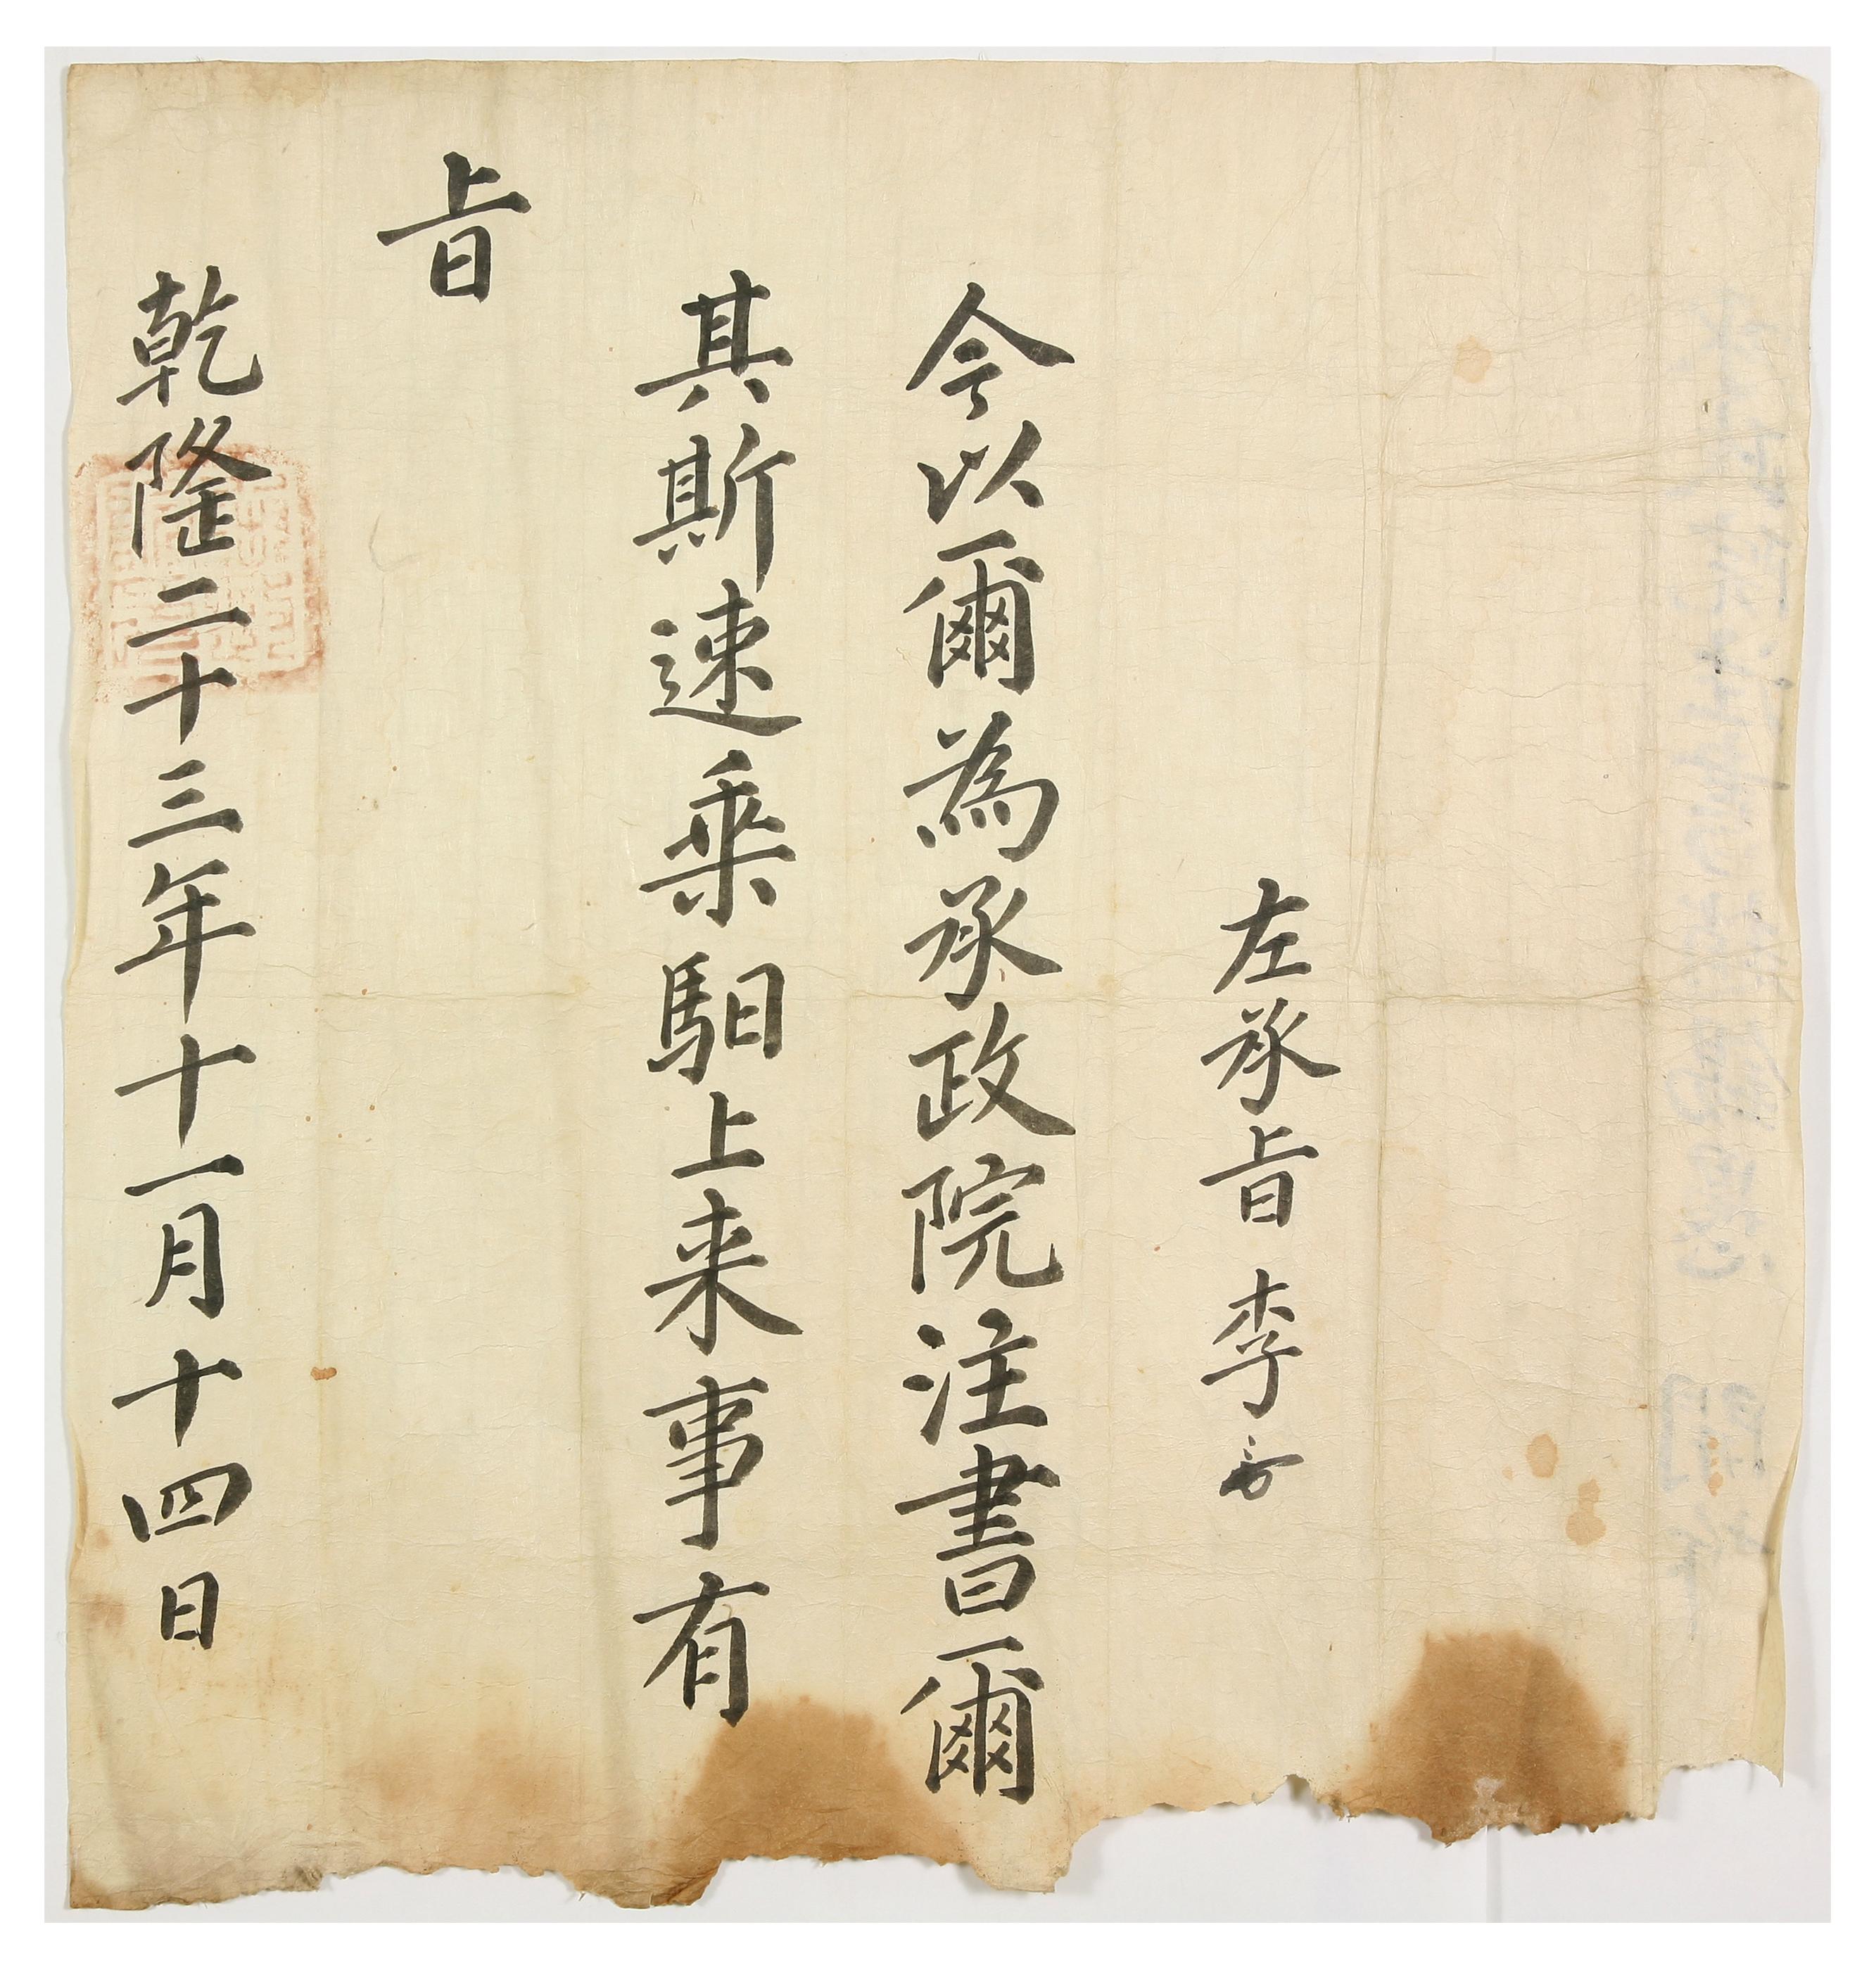 左承旨李
今以爾為承政院注書爾
其斯速乗馹上来事有
旨
乾隆二十三年十一月十四日